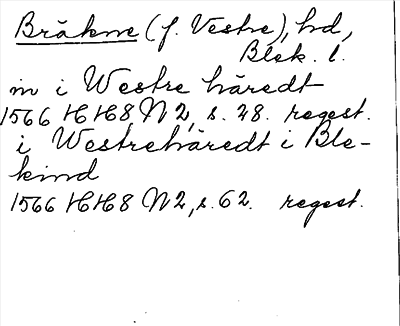 Bräkne (f. Vestre), hd,
Blek. l.
in i Westre häredt
1566 HH8, N2, s. 28. regest.
i Westrehäredt i Ble-
kind
1566 HH8 N2, s. 62. regest.